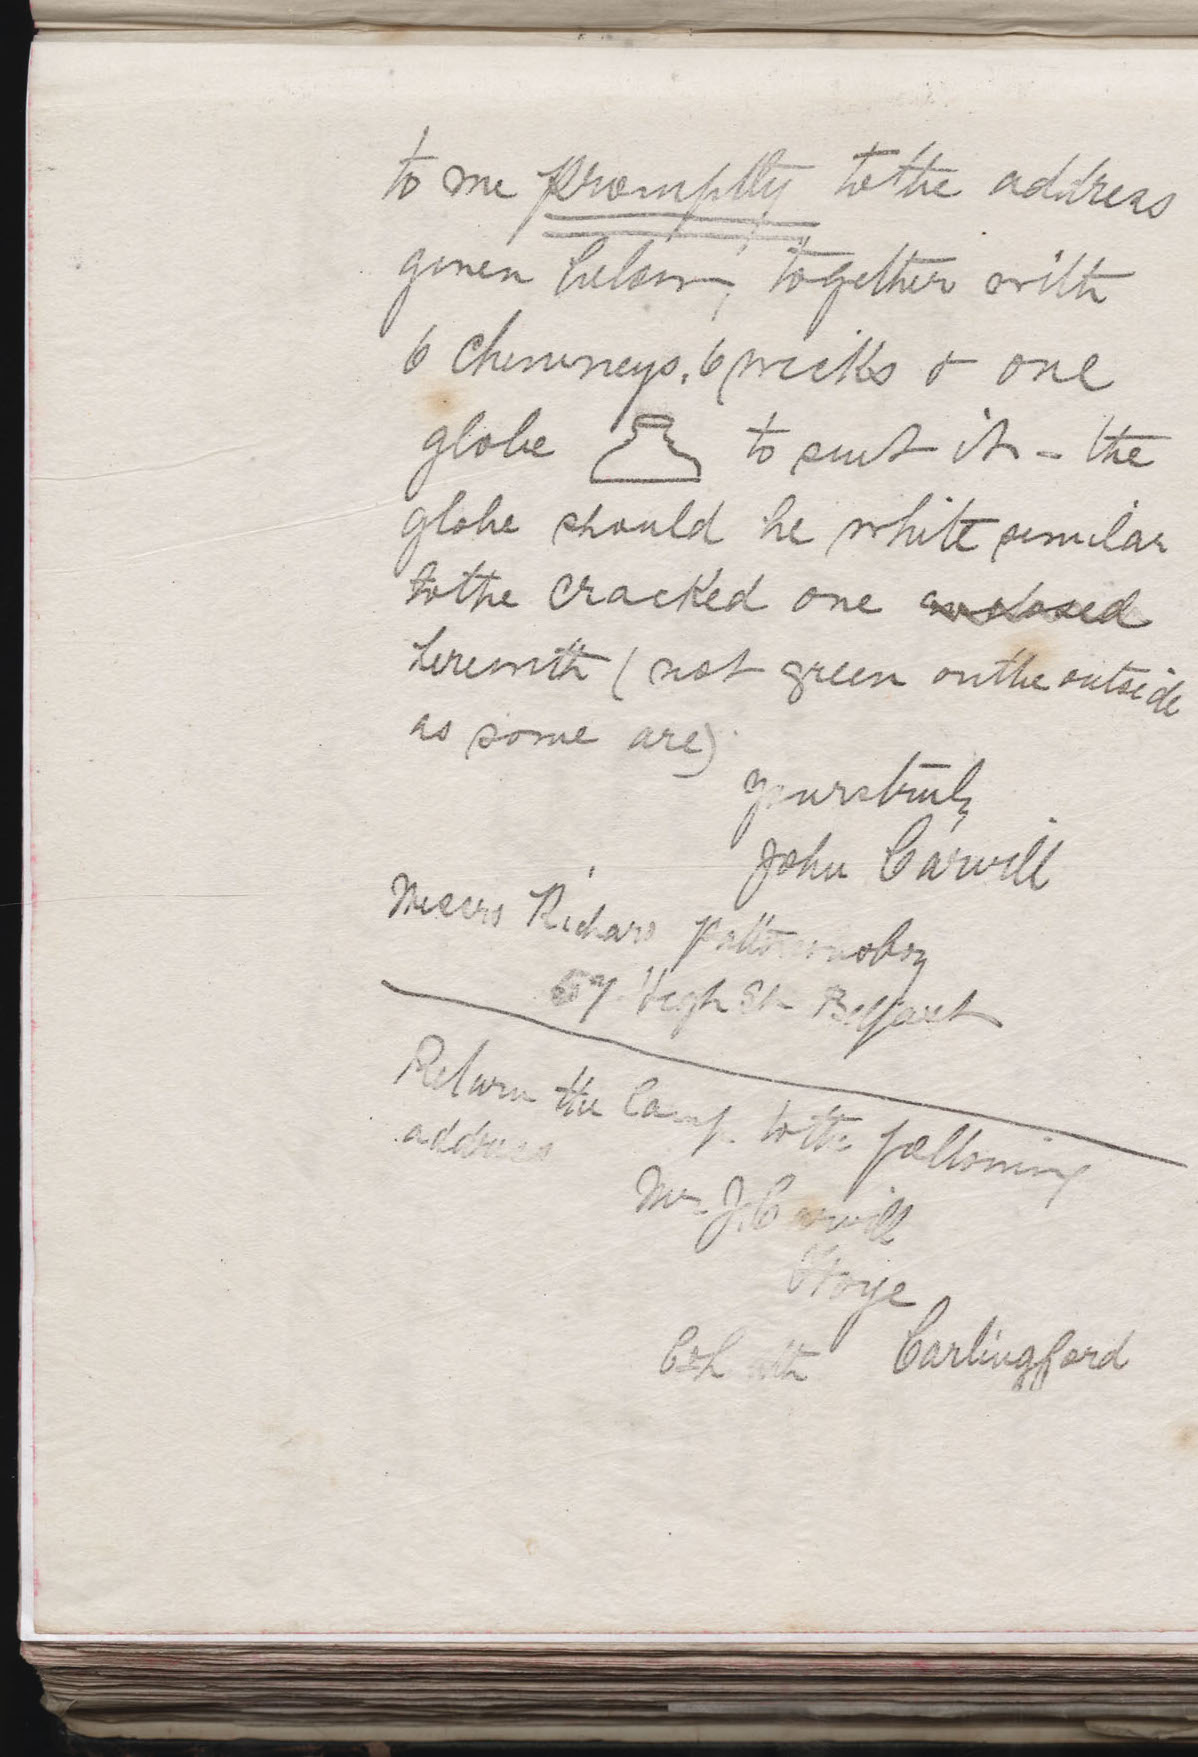 to me promptly to the address
given below, together with
6 chimneys, 6 wicks & one
globe to suit it - the
globe should be white similar
to the cracked one enclosed
herewith (not green on the outside
as some are)
yours truly
John Carvill
Messrs Richard Patterson & Coy
57 High St Belfast
Return the lamp to the following
address
Mr. J. Carvill
Carlingford